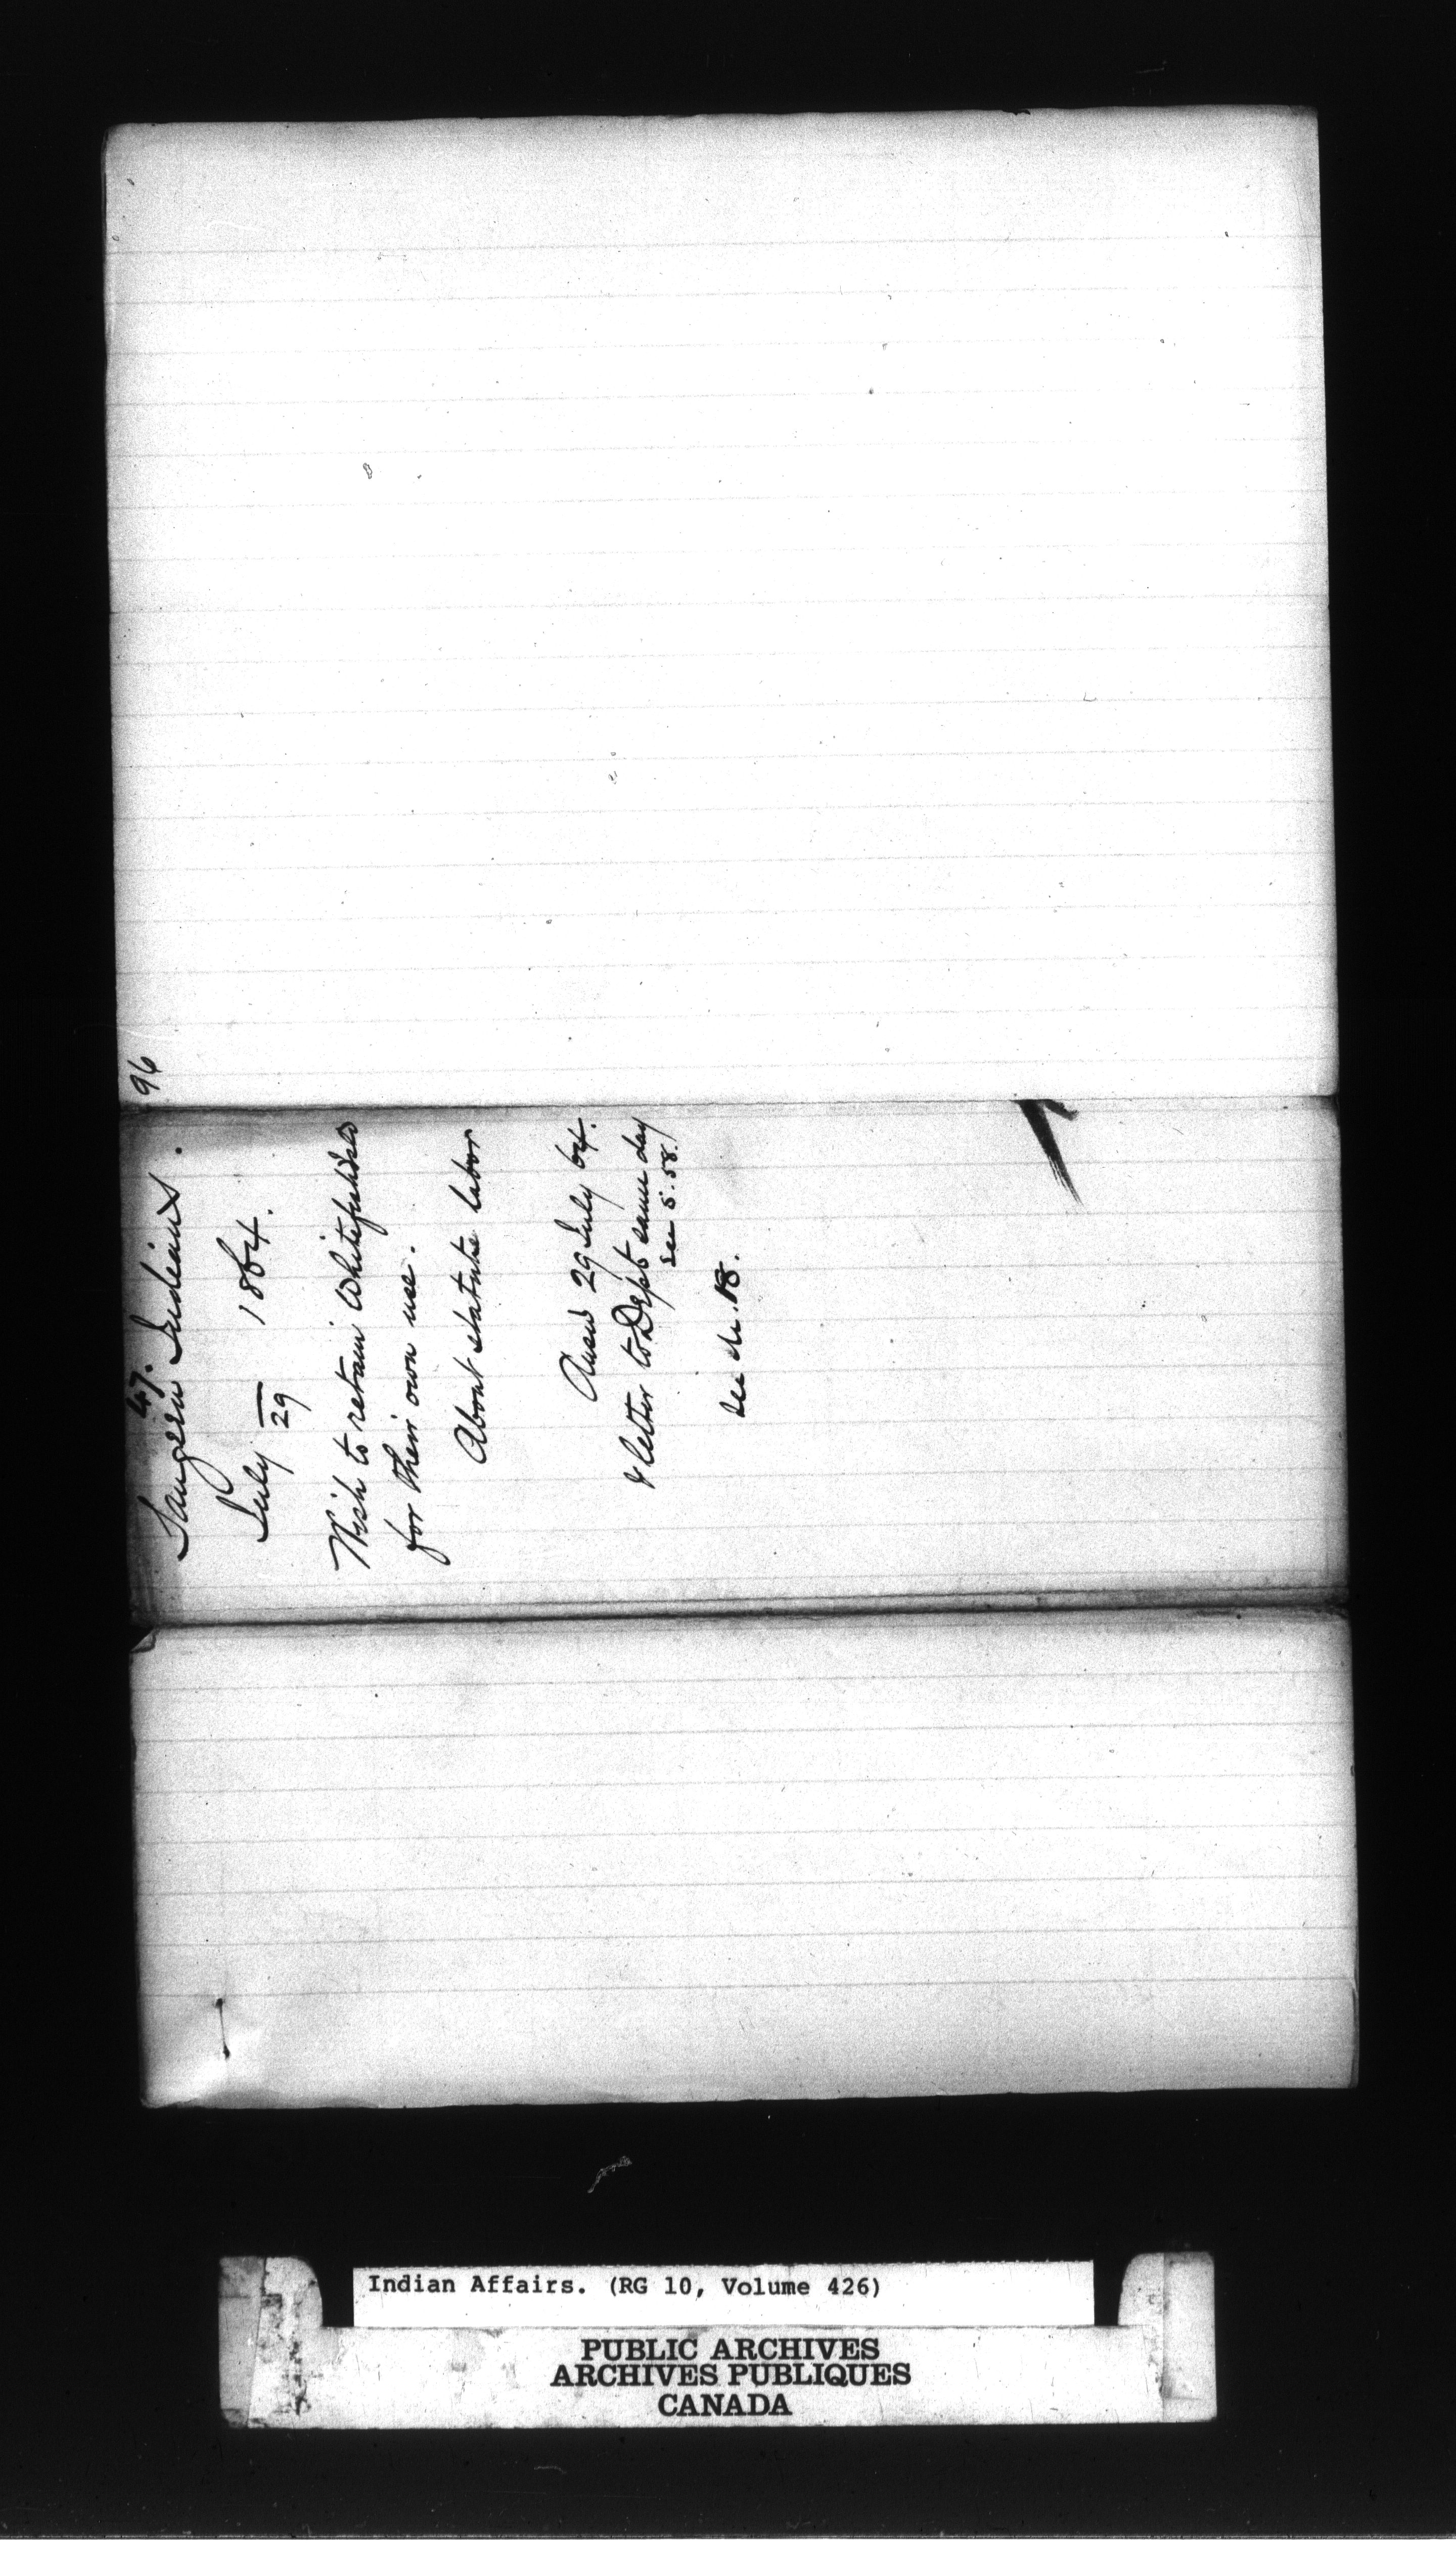 96
47.
Saugeen Indians.
July 29 1864.
Wish to retain Whitefishes
for their own use.
About statute labor
Answd 29 July 64.
& letter to Dept same day
see S. 58.
see 18.
Indian Affairs. (RG 10, Volume 426)
PUBLIC ARCHIVES
ARCHIVES PUBLIQUES
CANADA